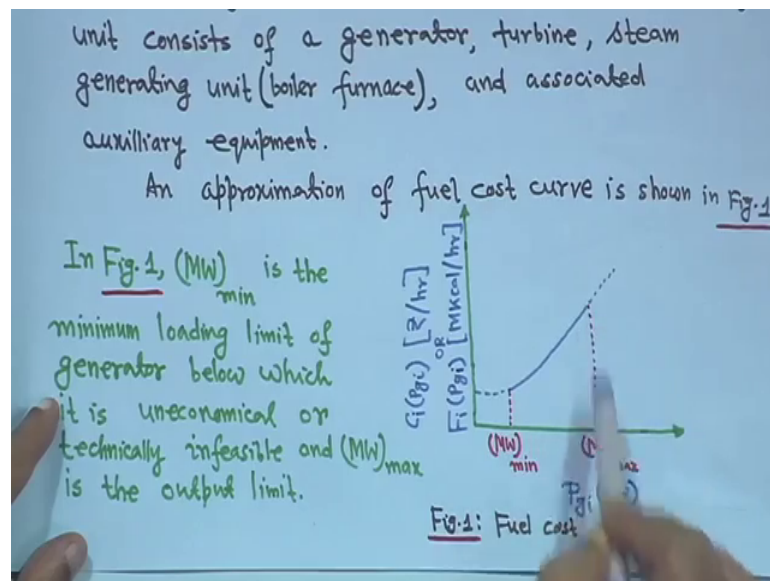 unit consists of a generator, turbine, steam
generating unit (boiler furnace), and associated
auxilliary equipment.
An approximation of fuel cost curve is shown in Fig.1
In Fig.1, (MW)min is the
minimum loading limit of
generator below which
it is uneconomical or
technically infeasible and (MW)max
is the output limit.
Ci(Pgi) [₹/hr]
OR
Fi(Pgi) [MKcal/hr]
(MW)min
Pgi
Fig.1: Fuel cost